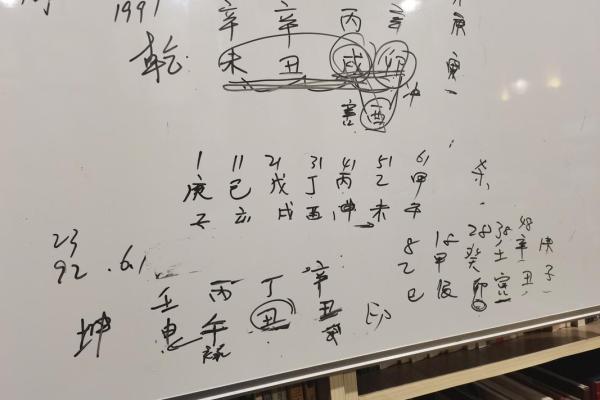 1991 辛 辛 丙 辛 庚
乾 未 丑 戌 卯 寅
冲
害 酉
1 11 21 31 41 51 61
庚 己 戊 丁 丙 乙 甲
子 亥 戌 酉 申 未 午
23
92.6/
坤 壬 丙 丁 辛
申 午 丑 丑
印
8 18 28 38 48
乙 甲 癸 壬 辛 庚
巳 辰 卯 寅 丑 子